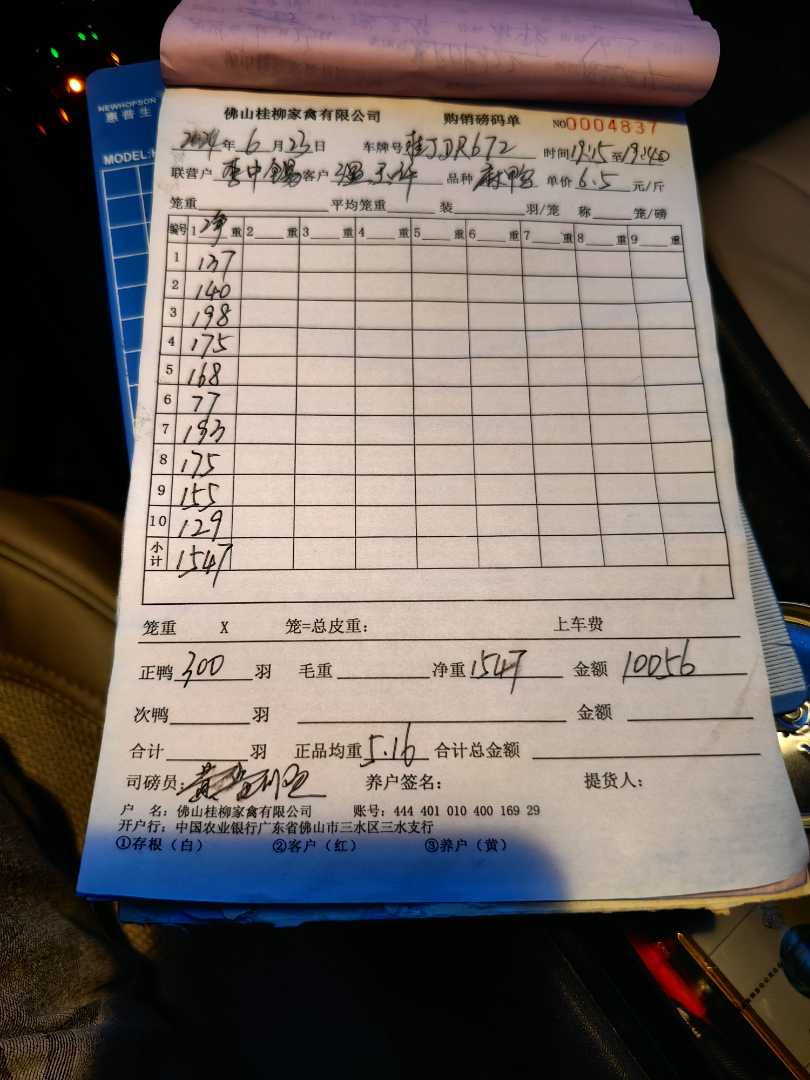 NEWHOPSON
惠普生
MODEL:
佛山桂柳家禽有限公司 购销磅码单 NO0004837
2024年 6月 23日 车牌号 桂J DR672 时间 19:15 至
联营户 李中锡 客户 品种 麻鸭 单价 6.5 元/斤
笼重 平均笼重 装 羽/笼 称 笼/磅
编号 1 净 重 2 重 3 重 4 重 5 重 6 重 7 重 8 重 9 重
1 137
2 140
3 198
4 175
5 168
6 77
7 193
8 175
9 155
10 129
小计 1547
笼重 X 笼=总皮重: 上车费
正鸭 300 羽 毛重 净重 1547 金额 10056
次鸭 羽 金额
合计 羽 正品均重 5.16 合计总金额
司磅员: 黄 养户签名: 提货人:
户 名: 佛山桂柳家禽有限公司 账号: 444 401 010 400 169 29
开户行: 中国农业银行广东省佛山市三水区三水支行
①存根（白） ②客户（红） ③养户（黄）